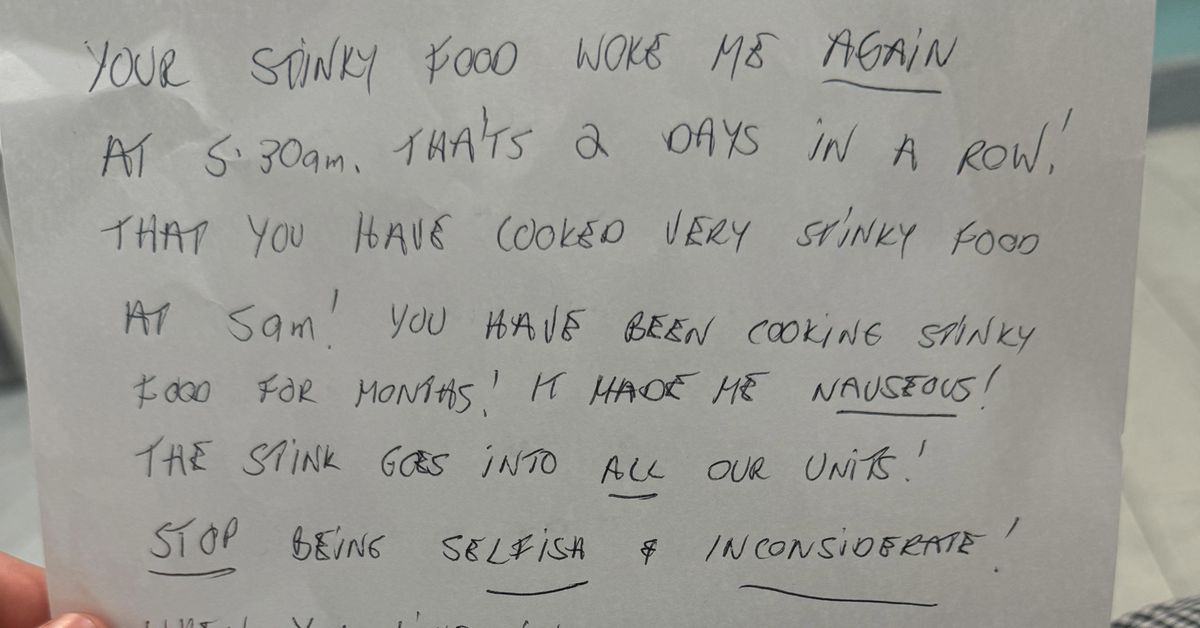 YOUR STINKY FOOD WOKE ME AGAIN
AT 5:30am. THAT'S 2 DAYS IN A ROW!
THAT YOU HAVE COOKED VERY STINKY FOOD
AT 5am! YOU HAVE BEEN COOKING STINKY
FOOD FOR MONTHS! IT MADE ME NAUSEOUS!
THE STINK GOES INTO ALL OUR UNITS!
STOP BEING SELFISH & INCONSIDERATE!